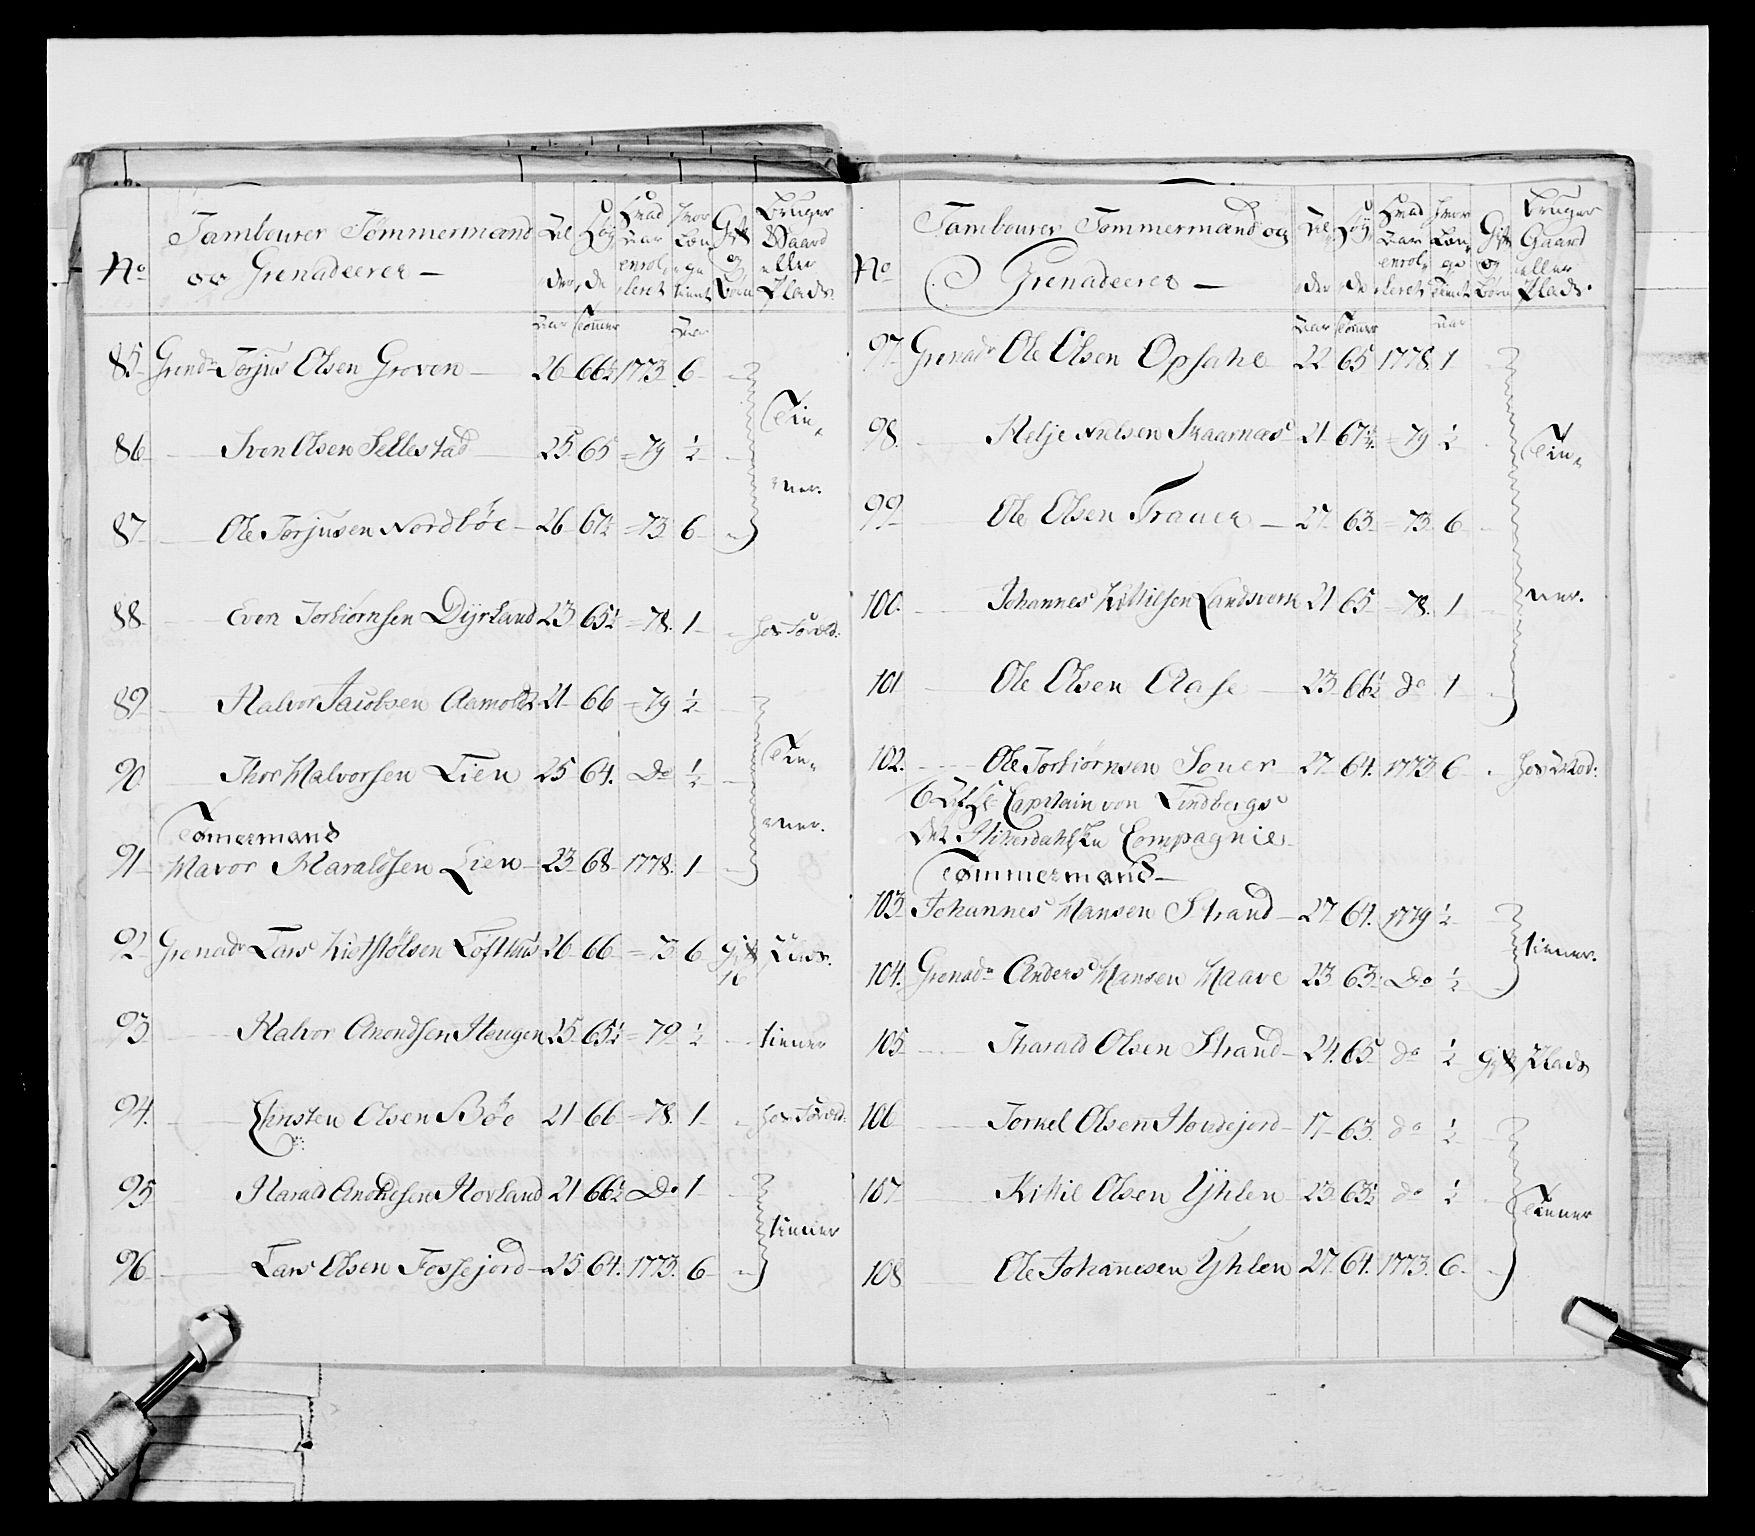 No
Tambourer Tømmermænd
og Grenadeerer —
Al
der
Høy
de
Hvad
Aar
enrol
leret
Hvor
Læn
ge
tient
Gift
og
Børn
Bruger
Gaard
eller
Plads
Aar Tommer Aar
85 Grend: Torjus Olsen Groven — 26 66½ 1773 6
86 Sven Olsen Sellestad 25 65 = 79 ½
87 Ole Torjusen Nordbøe — 26 67½ = 73 6
Tie,
ner.
88 Even Torbiørnsen Dyrland 23 65½ = 78. 1 hos Foræld:
89 Halvor Jacobsen Aamodt 21 66 = 79 ½
90 Thor Halvorsen Lien 25 64. Do ½
Tømermand
91 Havor Haraldsen Lien — 23 68 1778. 1
Tie,
ner.
92 Grenadr Lars Kiøstølsen Lofthuus 26 66 = 73 6 Gift Plads.
93 Halvor Anondsen Haugen 25 65½ = 79 ½ tiener
94. Christen Olsen Bøe 21 66 = 78. 1 hos Foræld:
95 Harald Anondsen Hovland 21 66½ Do 1
96 Lars Olsen Fossejord — 25 64. 1773. 6
tiener
No
Tambourer Tømmermænd og
Grenadeerer —
Al
der
Høy
de
Hvad
Aar
enrol
leret
Hvor
Læn
ge
tient
Gift
og
Børn
Bruger
Gaard
eller
Plads.
Aar Tommer Aar
97. Grenadr Ole Olsen Opsahl 22 65 1778. 1
98. Helje Nielsen Skaarnæs 21 67½ = 79 ½
99 Ole Olsen Traaer — 27 63 = 73 6
100. Johannes Kittilsen Landsverk 21 65 = 78. 1
101 Ole Olsen Aase — 23 66½ do 1
Tie,
ner.
102. Ole Torbiørnsen Souer 27 64. 1773 6
Capitain von Lindbergs
Det Hiterdahlske Compagnie
Tømmermand —
103. Johannes Hansen Strand — 27 64. 1779 ½
104. Grenadr Anders Hansen Haave 23 63. Do ½
tiener.
105 Tharald Olsen Strand — 24. 65 do ½ Gift Plads
106 Torkel Olsen Houdejord — 17 63. do ½
107 Kittil Olsen Yhlen — 23 63½ do ½
108 Ole Johannesen Yhlen 27. 64. 1773. 6.
Tiener